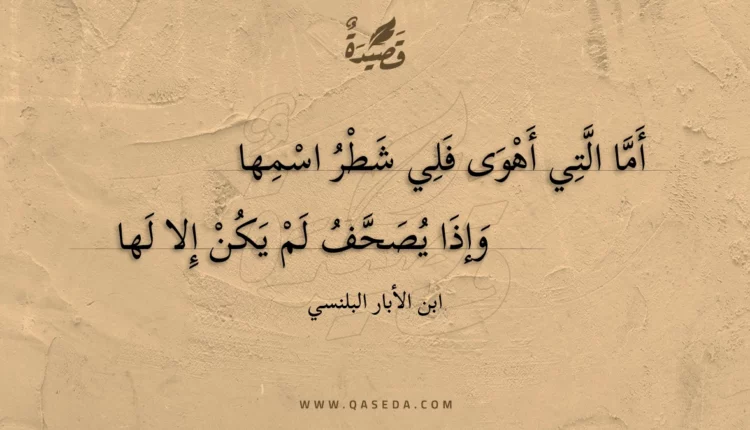 قَصِيدَةٌ
أَمَّا الَّتِي أَهْوَى فَلِي شَطْرُ اسْمِها
وَإذَا يُصَحَّفُ لَمْ يَكُنْ إِلا لَها
ابن الأبار البلنسي
WWW.QASEDA.COM